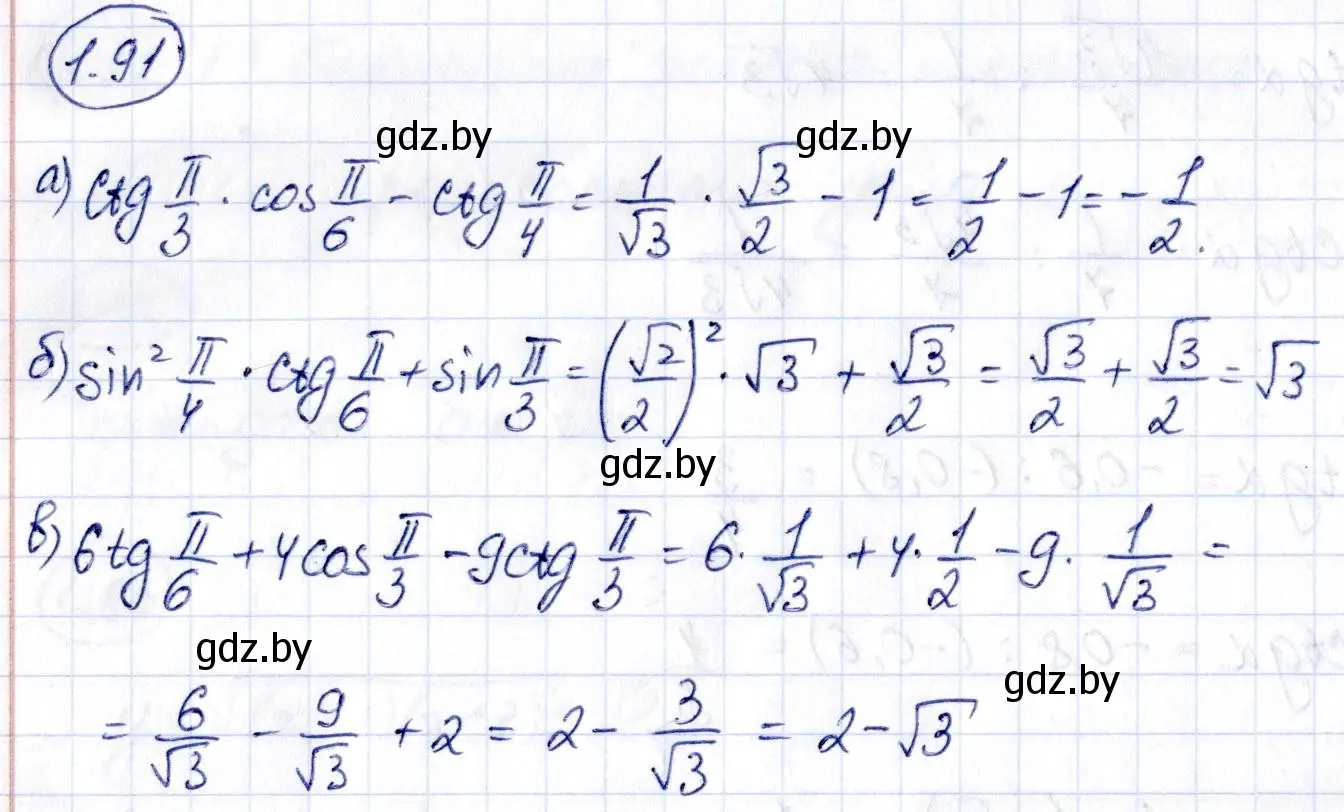 1.91
gdz.by gdz.by
а) ctg π/3 · cos π/6 - ctg π/4 = 1/√3 · √3/2 - 1 = 1/2 - 1 = -1/2.
б) sin² π/4 · ctg π/6 + sin π/3 = (√2/2)² · √3 + √3/2 = √3/2 + √3/2 = √3
gdz.by
в) 6tg π/6 + 4cos π/3 - 9ctg π/3 = 6 · 1/√3 + 4 · 1/2 - 9 · 1/√3 =
gdz.by gdz.by
= 6/√3 - 9/√3 + 2 = 2 - 3/√3 = 2 - √3